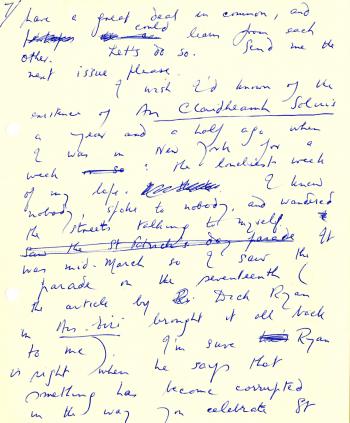 7/ have a great deal in common, and
perhaps could learn from each
other. Let's do so. Send me the
next issue please.
I wish I'd known of the
existence of An Claidheamh Soluis
a year and a half ago when
I was in New York for a
week or so: the loneliest week
of my life. I knew
nobody, spoke to nobody, and wandered
the streets talking to myself.
saw the St Patrick's Day parade It
was mid-March so I saw the
parade on the seventeenth (
the article by Dr. Dick Ryan
in brought it all back
to me). I'm sure Ryan
is right when he says that
something has become corrupted
in the way you celebrate St